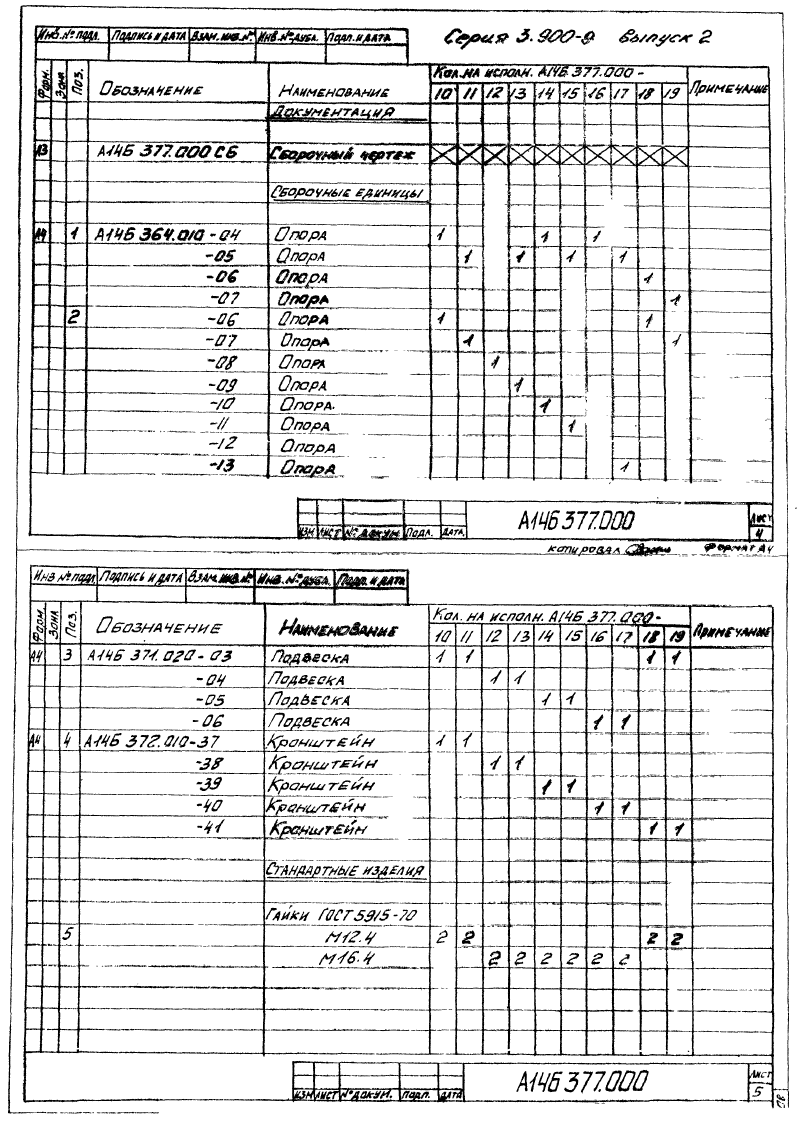 Серия 3.900-9 Выпуск 2
Инв.№ подл. Подпись и дата Взам.инв.№ Инв.№ дубл. Подп. и дата
Форм. Зона Поз. Обозначение Наименование Кол. на исполн. А14Б 377.000- Примечание
10 11 12 13 14 15 16 17 18 19
Документация
А3 А14Б 377.000 СБ Сборочный чертеж
Сборочные единицы
А4 1 А14Б 364.010-04 Опора 1 1 1
-05 Опора 1 1 1 1
-06 Опора 1
-07 Опора 1
2 -06 Опора 1 1
-07 Опора 1 1
-08 Опора 1
-09 Опора 1
-10 Опора 1
-11 Опора 1
-12 Опора
-13 Опора 1
Изм Лист № докум. Подп. Дата А14Б 377.000 Лист 4
Копировал Формат А4
Инв № подл Подпись и дата Взам.инв.№ Инв.№ дубл. Подп. и дата
Форм. Зона Поз. Обозначение Наименование Кол. на исполн. А14Б 377.000- Примечание
10 11 12 13 14 15 16 17 18 19
А4 3 А14Б 371.020-03 Подвеска 1 1 1 1
-04 Подвеска 1 1
-05 Подвеска 1 1
-06 Подвеска 1 1
А4 4 А14Б 372.010-37 Кронштейн 1 1
-38 Кронштейн 1 1
-39 Кронштейн 1 1
-40 Кронштейн 1 1
-41 Кронштейн 1 1
Стандартные изделия
Гайки ГОСТ 5915-70
5 М12.4 2 2 2 2
М16.4 2 2 2 2 2 2
Изм Лист № докум. Подп. Дата А14Б 377.000 Лист 5